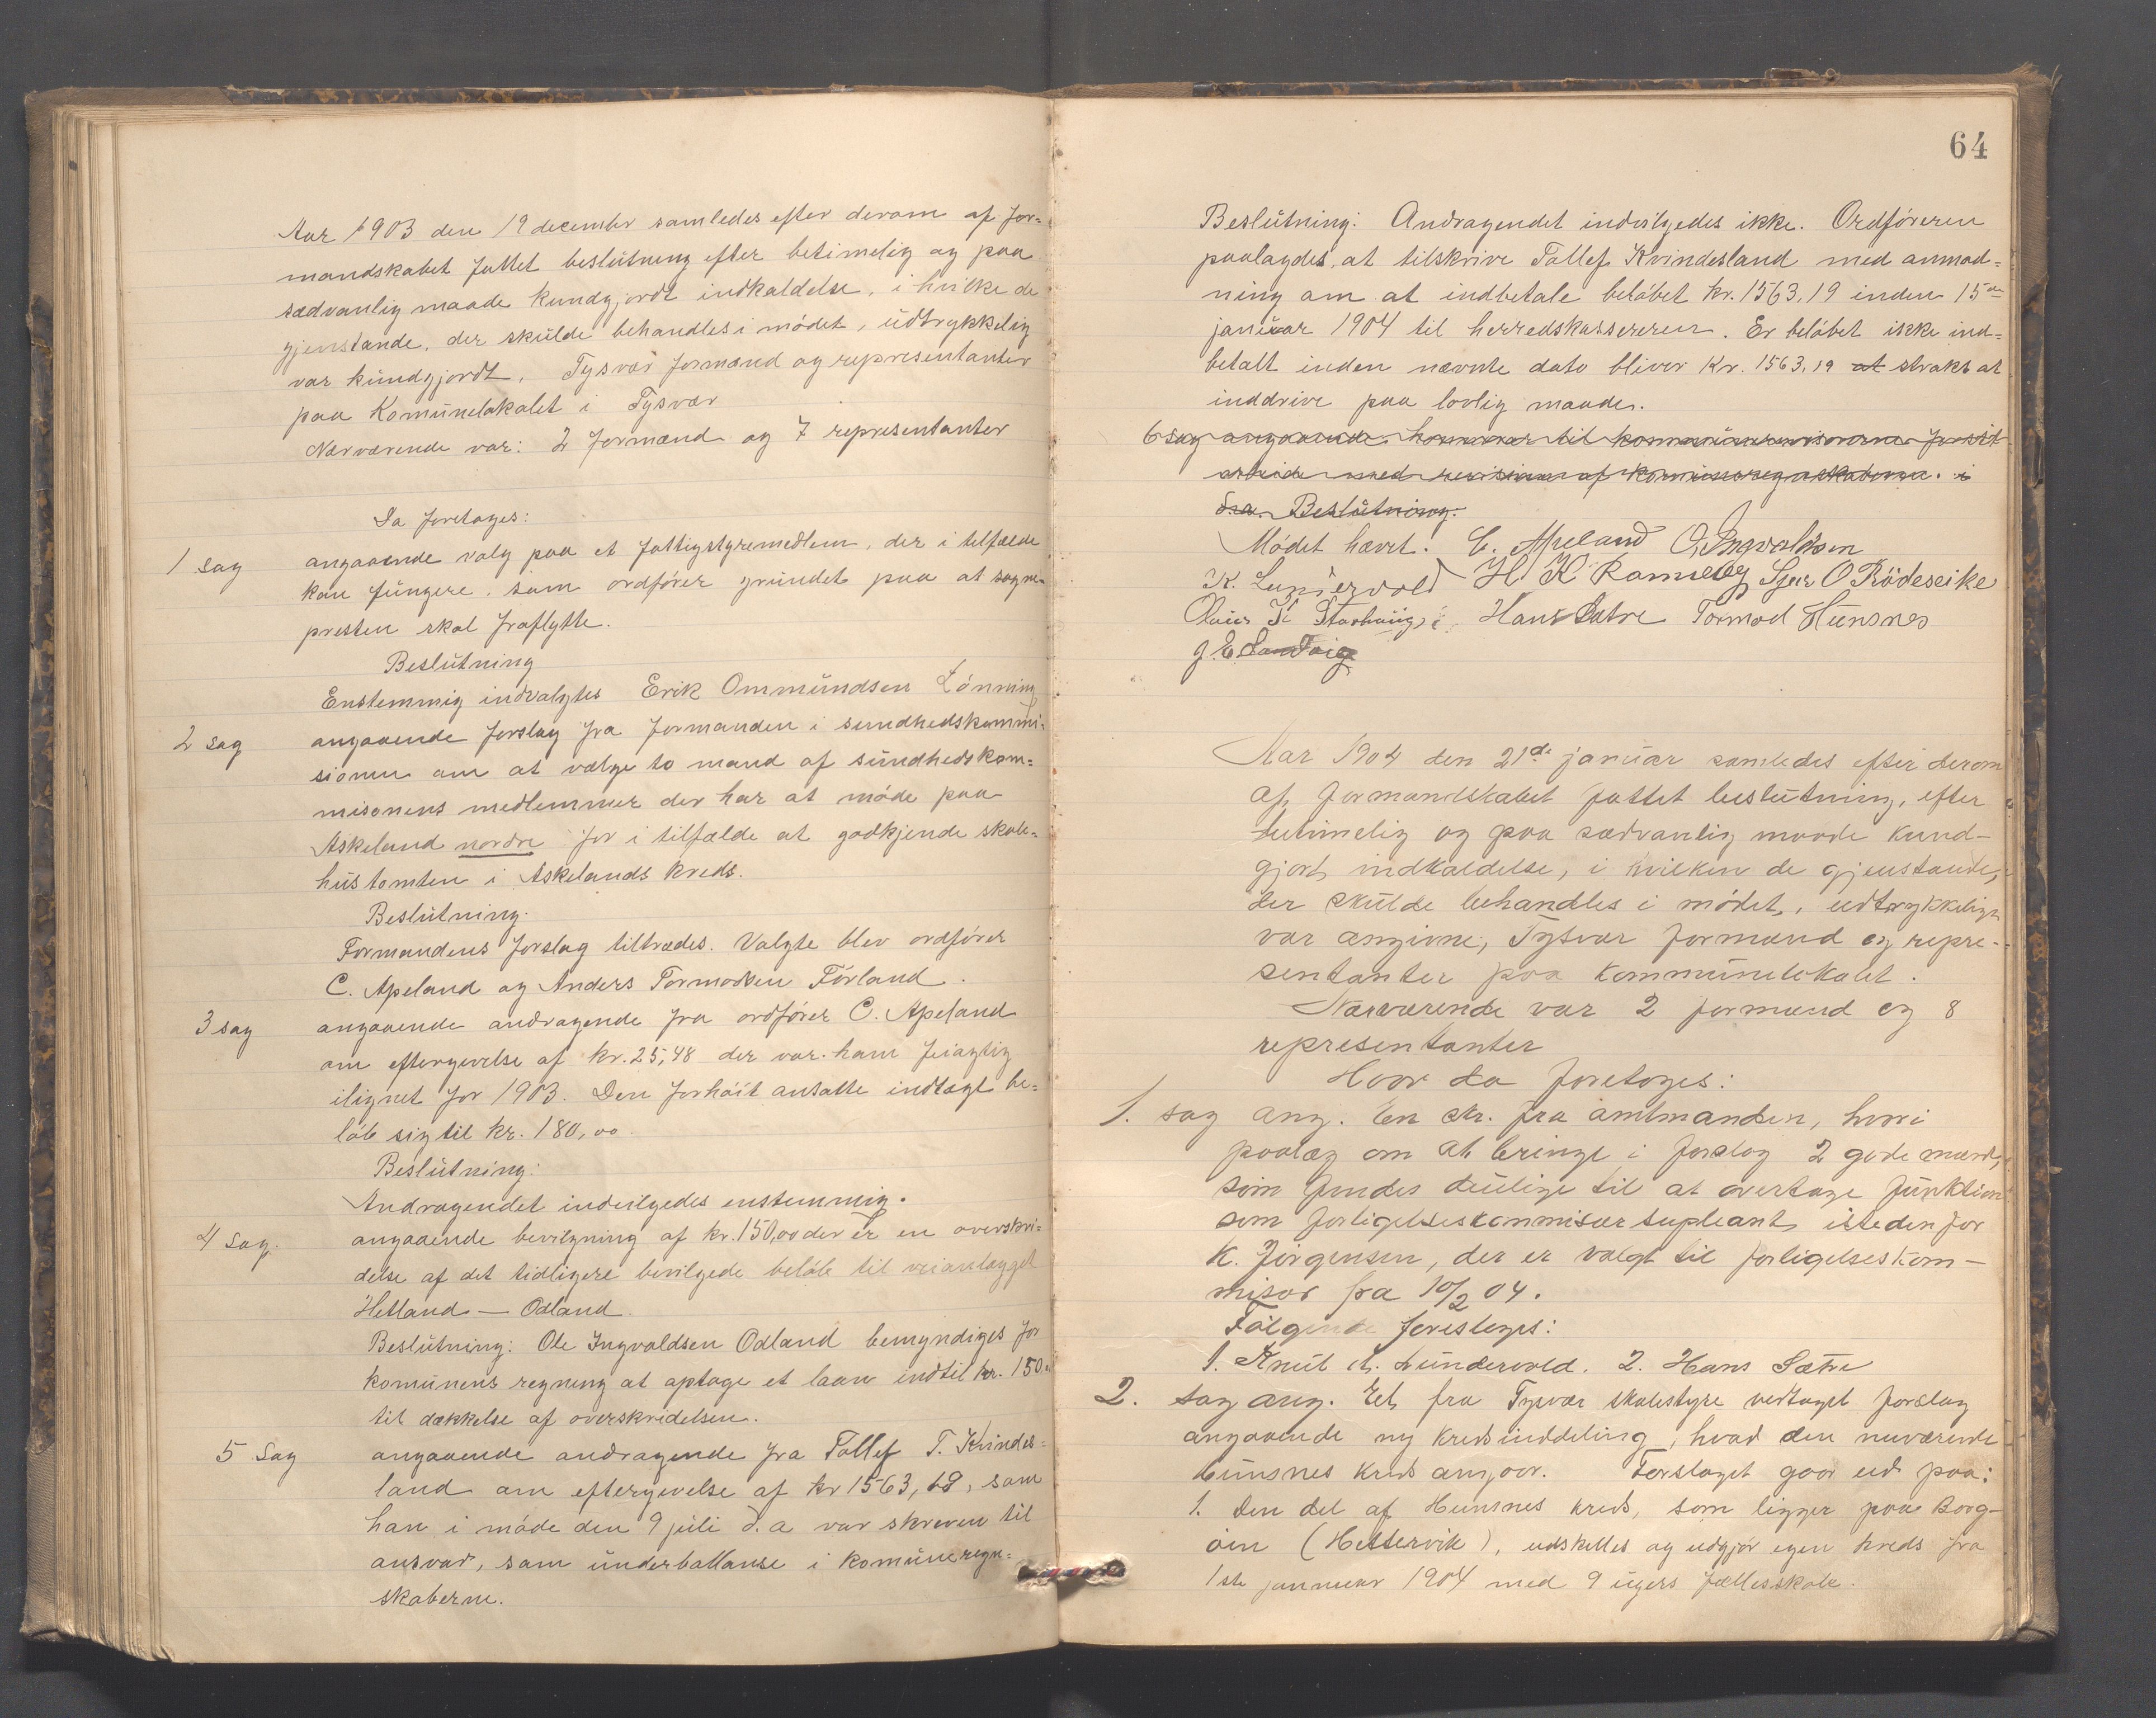 Aar 1903 den 19 december samledes efter derom af for=
mandskabet fattet beslutning efter betimelig og paa
sædvanlig maade kundgjordt indkaldelse, i hvilke de
gjenstande, der skulde behandles i mödet, udtrykkelig
var kundgjordt, Tysvær formænd og representanter
paa Komunelokalet i Tysvær
Nærværende var: 2 formænd og 7 representanter
Da foretages:
1 sag angaaende valg paa et fattigstyremedlem, der i telfælde
kan fungere som ordförer grundet paa at sogne-
presten skal fraflytte.
Beslutning
Enstemmig indvalgtes Erik Ommundsen Lönning
2 sag angaaende forslag fra formanden i sundhedskommi=
sionen om at vælge to mænd af sundhedskom=
misonens medlemmer der har at möde paa
Askeland nordre for i tilfælde at godkjende skole=
hustomten i Askelands kreds.
Beslutning.
Formandens forslag tiltrædes. Valgte blev ordförer
C. Apeland og Anders Tormodsen Förland.
3 sag angaaende andragende fra ordförer C. Apeland
om eftergivelse af kr. 25,48 der var ham feiagtig
ilignet for 1903. Den forhöit ansatte indtægt be=
löb sig til kr. 180,00
Beslutning:
Andragendet indvilgedes enstemmig.
4 sag. angaaende bevilgning af kr. 150,00 der er en overskri=
delse af det tidligere bevilgede belöb til veianlægget
Hetland — Odland
Beslutning: Ole Ingvaldsen Odland bemyndiges for
komunens regning at optage et laan indtil kr. 150
til dækkelse af overskridelsen.
5 Sag angaaende andragende fra Tollef T. Kvindes=
land om eftergivelse af kr 1563,19, som
han i möde den 9 juli d.a var skreven til
ansvar, som underballanse i komuneregn=
skaberne.
64
Beslutning: Andragendet indvilgedes ikke. Ordföreren
paalagdes, at tilskrive Tollef Kvindesland med anmod=
ning om at indbetale belöbet kr. 1563,19 inden 15de
januar 1904 til herredskassereren. Er belöbet ikke ind=
betalt inden nævnte dato bliver Kr. 1563,19 at straks at
inddrive paa lovlig maade.
6 sag angaaende honorar til kommunerevisorerne for sit
arbeide med revision af kommuneregnskaberne. i
d.a. Beslutning.
Mödet hævet. C. Apeland O. Ingvaldsen
K. Lundervold H K Ramsvig Sjur O Rödeseike
Hans Sætre Tormod Hünsnes
g. E. Sandvig
Aar 1904 den 21de januar samledes efter derom
af formandskabet fattet beslutning, efter
betimelig og paa sædvanlig maade kund-
gjort indkaldelse, i hvilken de gjenstande,
der skulde behandles i mödet, udtrykkelig
var angivne, Tysvær formænd og repre-
sentanter paa kommunelokalet.
Nærværende var 2 formænd og 8
representanter
Hvor da foretoges:
1. sag ang. En skr. fra amtmanden, hvori
paalæg om at bringe i forslag 2 gode mænd,
som findes duelige til at overtage funktion
som forligelseskommisær supleant isteden for
K. Jörgensen, der er valgt til forligelseskom-
misær fra 10/2 04.
Fölgende foresloges:
1. Knut K. Lundervold. 2. Hans Sætre
2. sag ang. Et fra Tysvær skolestyre vedtaget forslag
angaaende ny kredsinddeling, hvad den nuværende
Hunsnes kreds angaar. Forslaget gaar ud paa:
1. Den del af Hunsnes kreds, som ligger paa Borg-
öin (Hettervik), udskilles og udgjör egen kreds fra
1ste januar 1904 med 9 ugers fællesskole.